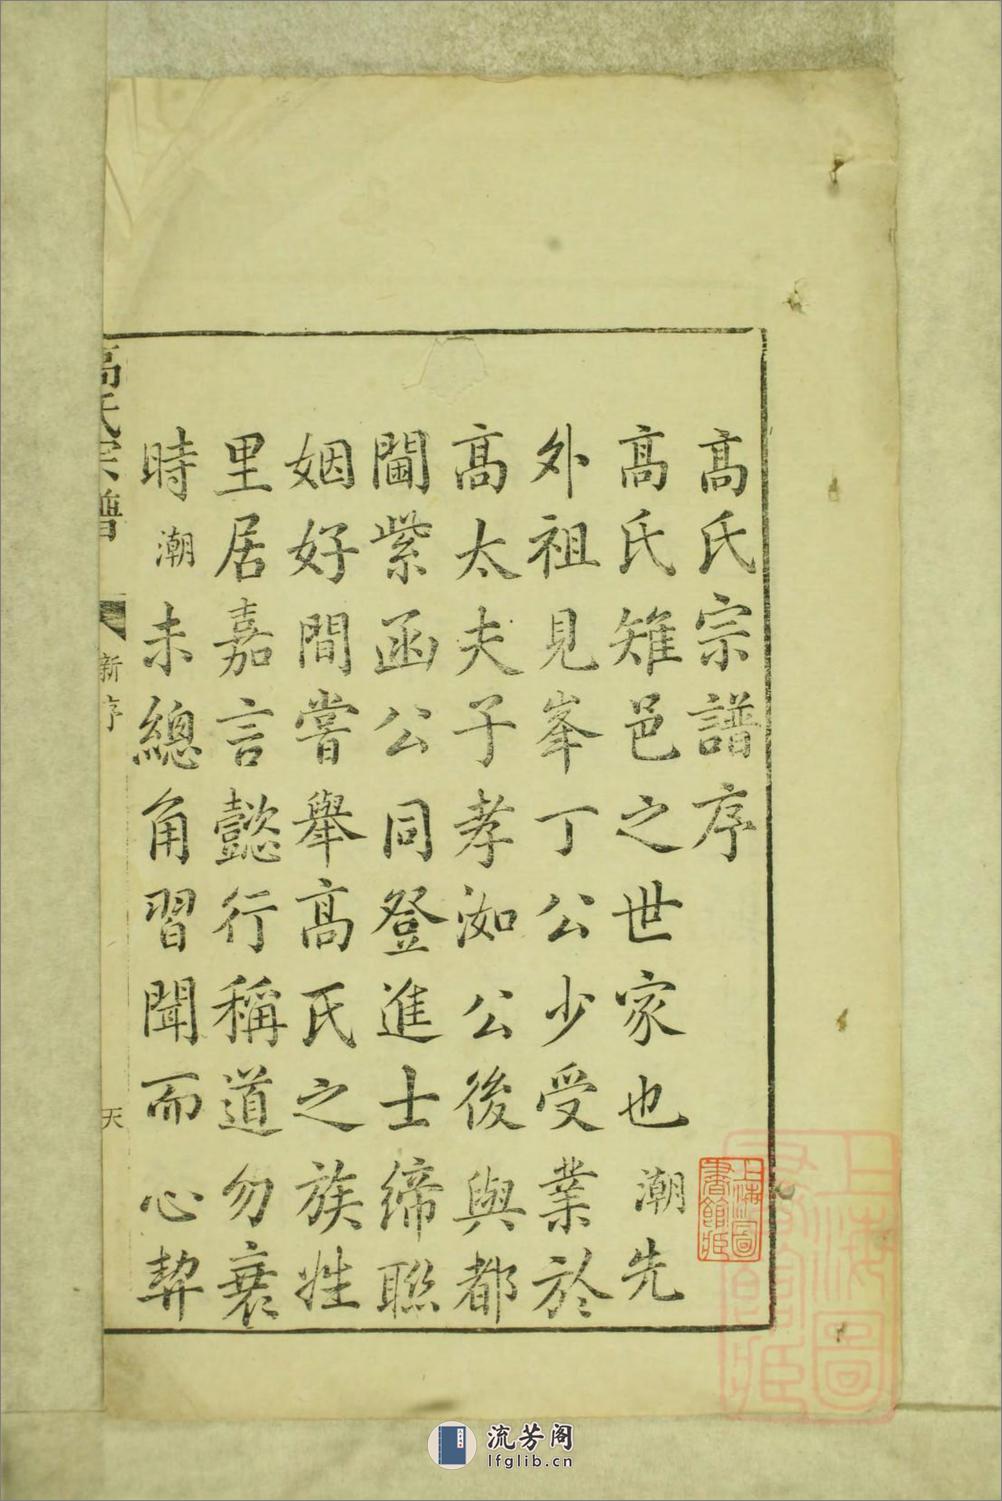 高氏宗譜序
高氏雉邑之世家也潮先
外祖見峯丁公少受業於
高太夫子孝洳公後與都
閫紫函公同登進士締聮
姻好間嘗舉高氏之族姓
里居嘉言懿行稱道勿衰
時潮未總角習聞而心契
高氏宗譜
新序
天
上海圖書館藏
上海圖書館藏
流芳阁
lfglib.cn